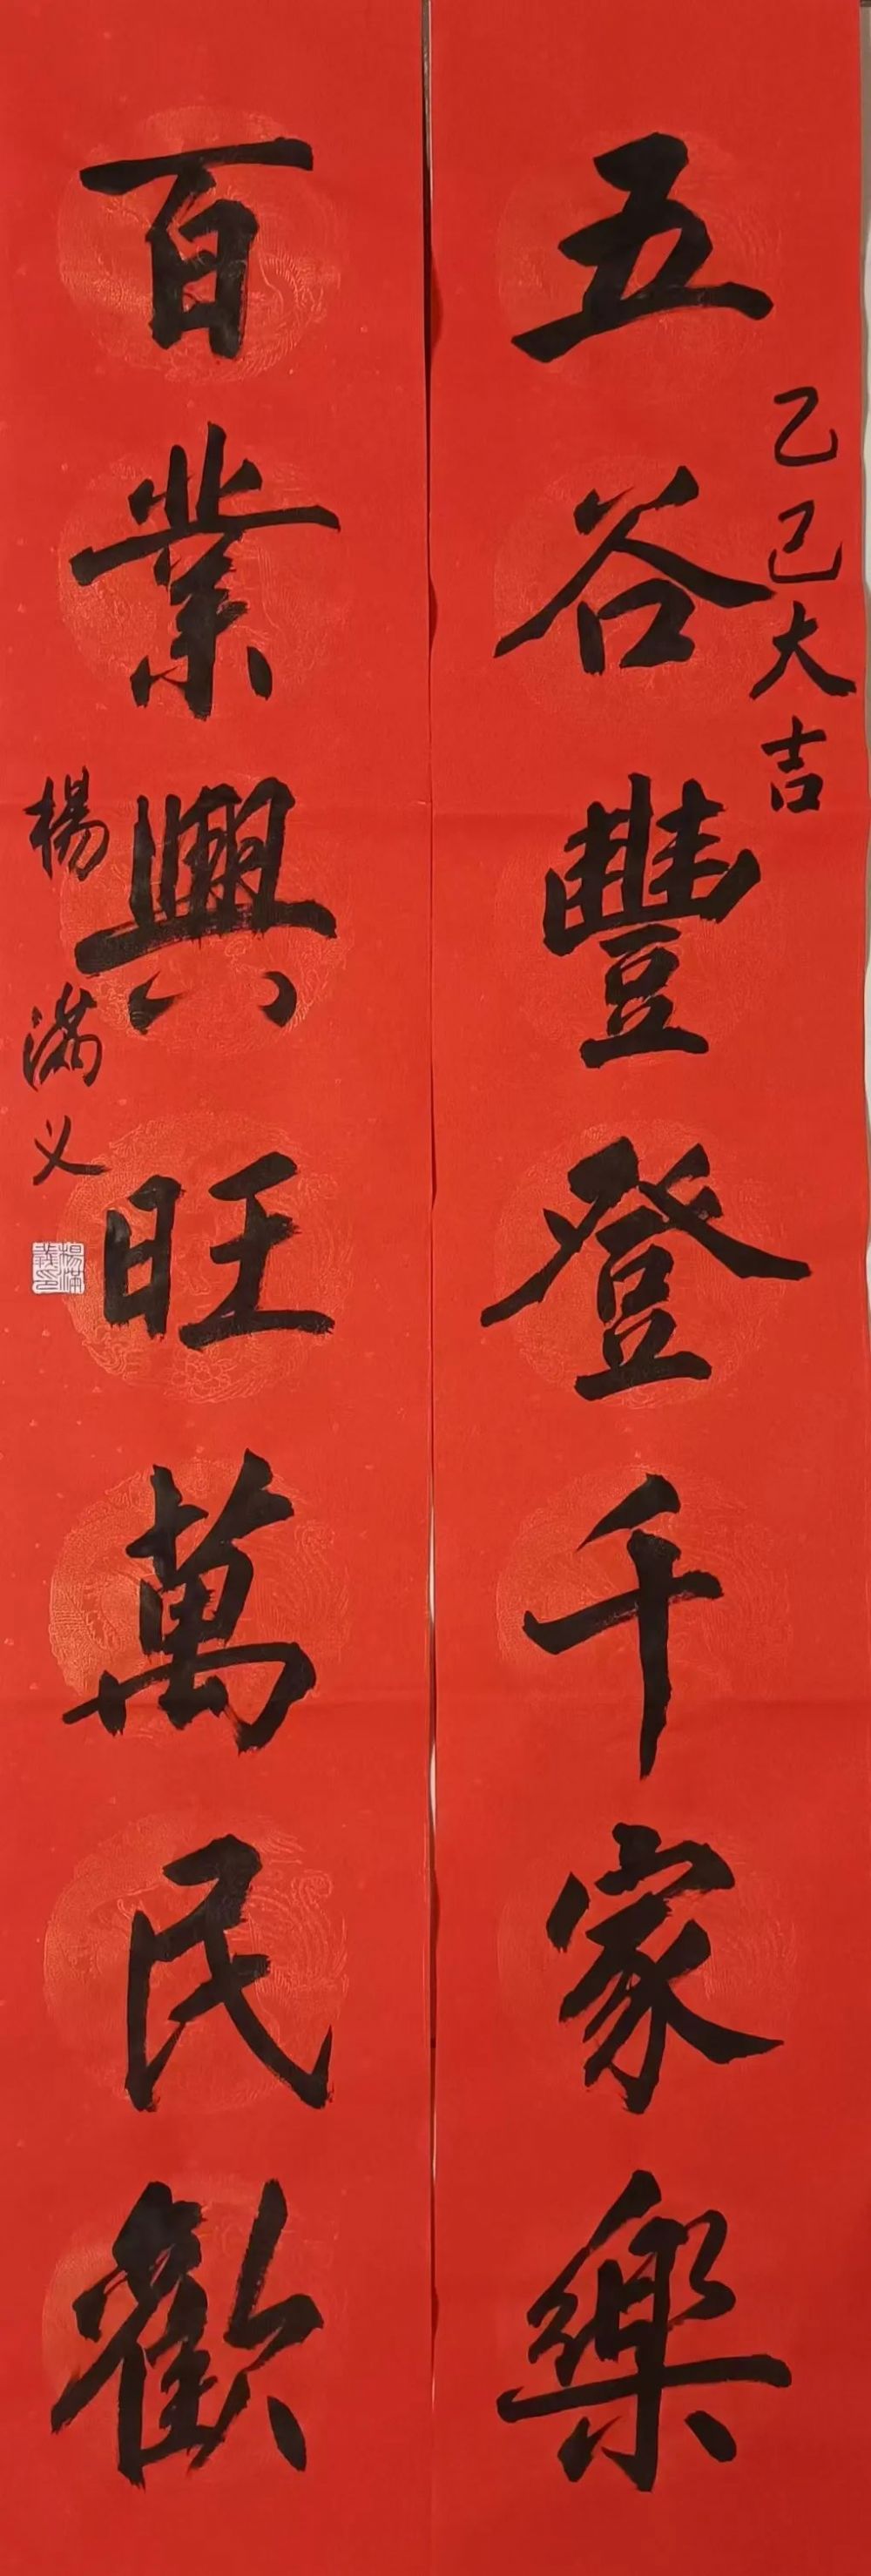 五谷豐登千家樂
乙巳大吉
百業興旺萬民歡
楊滿义
楊滿義印